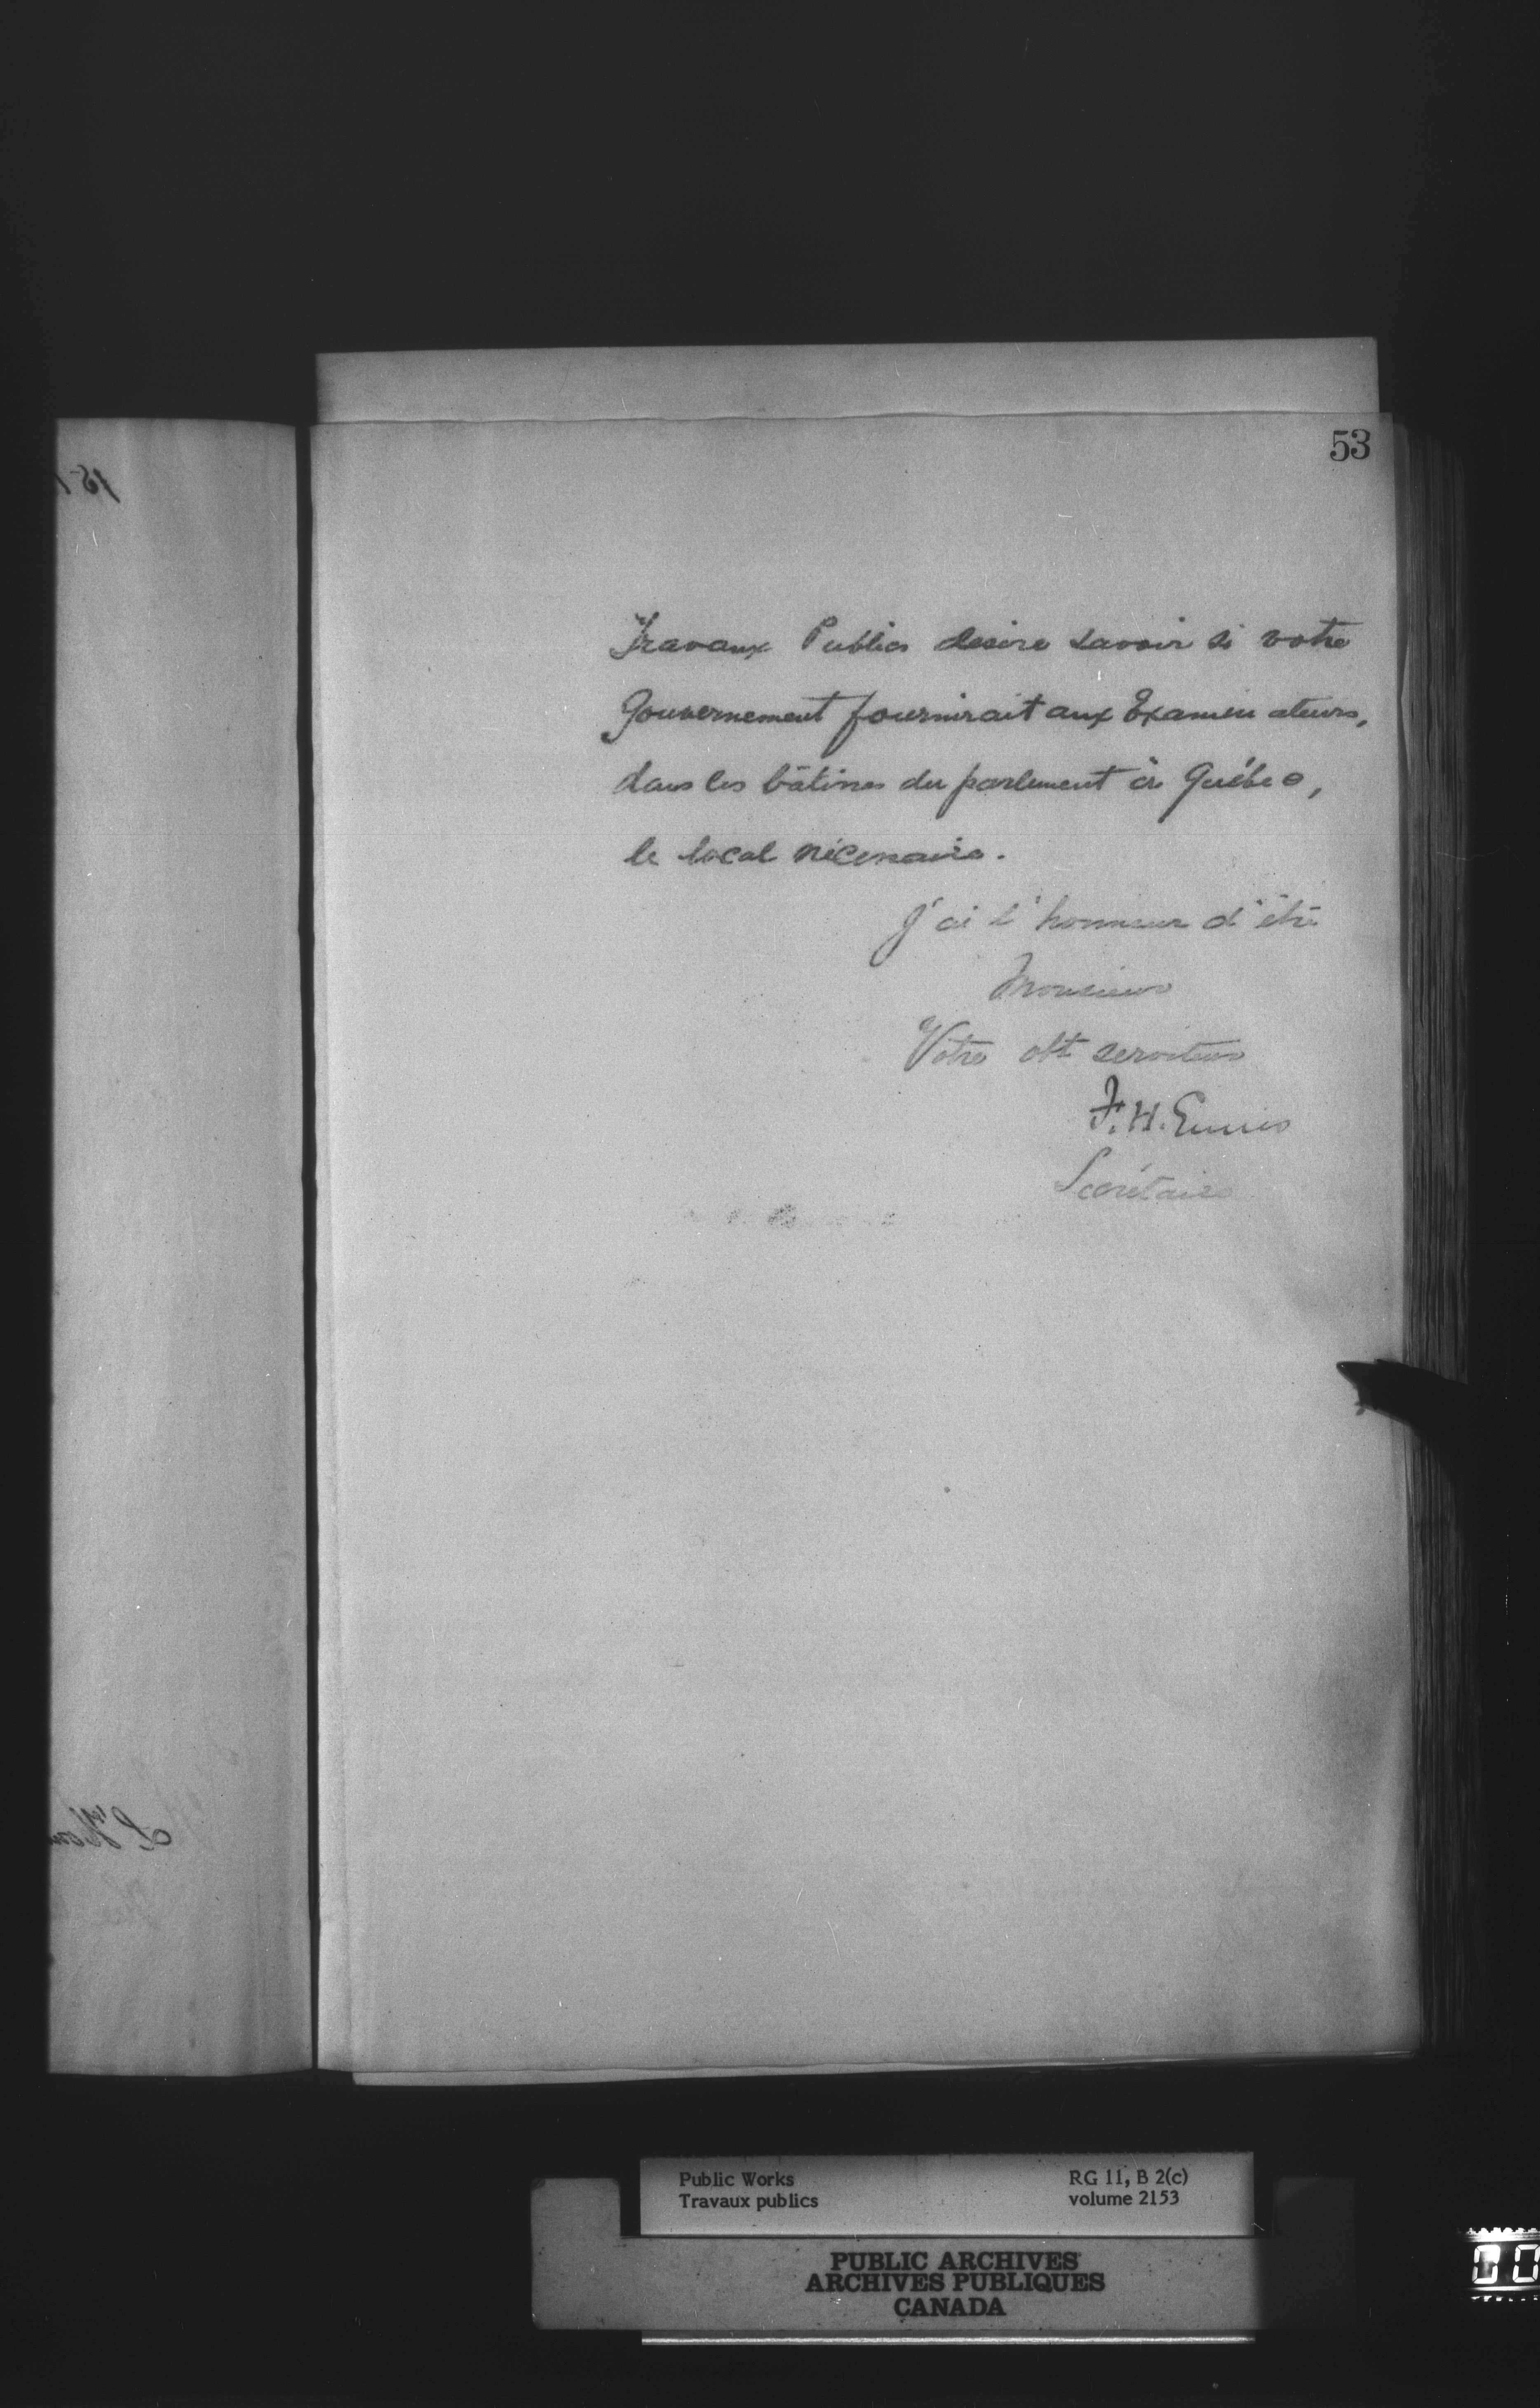 53
Travaux Publics desire savoir si votre
Gouvernement fournirait aux Examinateurs,
dans les bâtisses du parlement à Québec,
le local nécessaire.
J'ai l'honneur d'être
Monsieur
Votre obt serviteur
F. H. Ennis
Secrétaire
Public Works
Travaux publics
RG 11, B 2(c)
volume 2153
PUBLIC ARCHIVES
ARCHIVES PUBLIQUES
CANADA